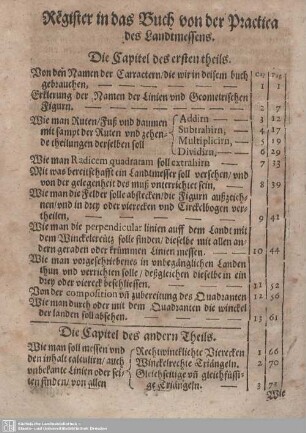 Register in das Buch von der Practica
des Landtmessens.
Die Capitel des ersten theils.
Von den Namen der Caractern/die wir in deisem buch
gebrauchen, 1 1
Erklerung der Namen der Linien vnd Geometrischen
Figurn. 2 7
Wie man Ruten/Fuß vnd daumen
mit sampt der Ruten vnd zehen-
de theilungen derselben soll
Addirn 3 12
Subtrahirn, 4 17
Multiplicirn, 5 19
Dividirn, 6 29
Wie man Radicem quadratam soll extrahirn 7 33
Mit was bereitschafft ein Landtmesser soll versehen/vnd
von der gelegenheit des muß vnterrichtet sein, 8 39
Wie man die Felder solle abstecken/die Figurn außzeich-
nen/vnd in drey oder vierecken vnd Circkelbogen ver-
theilen, 9 41
Wie man die perpendicular linien auff dem Landt mit
dem Winckelcreütz solle finden/dieselbe mit allen an-
dern geraden oder krümmen Linien messen. 10 44
Wie man vorgeschriebenes in vnbegänglichen Landen
thun vnd verrichten solle/deßgleichen dieselbe in ein
drey oder viereck beschliessen. 11 52
Von der composition vñ zubereitung des Quadranten 12 56
Wie man durch oder mit dem Quadranten die winckel
der landen soll absehen. 13 61
Die Capitel des andern Theils.
Wie man soll messen vnd
den inhalt calculirn/auch
vnbekante Linien oder sei-
ten finden/von allen
Rechtwincklichte Vierecken 1 66
Winckelrechte Triängeln. 2 70
Gleichseitige vñ gleichfüssi-
ge Triängeln. 3 72
Wie